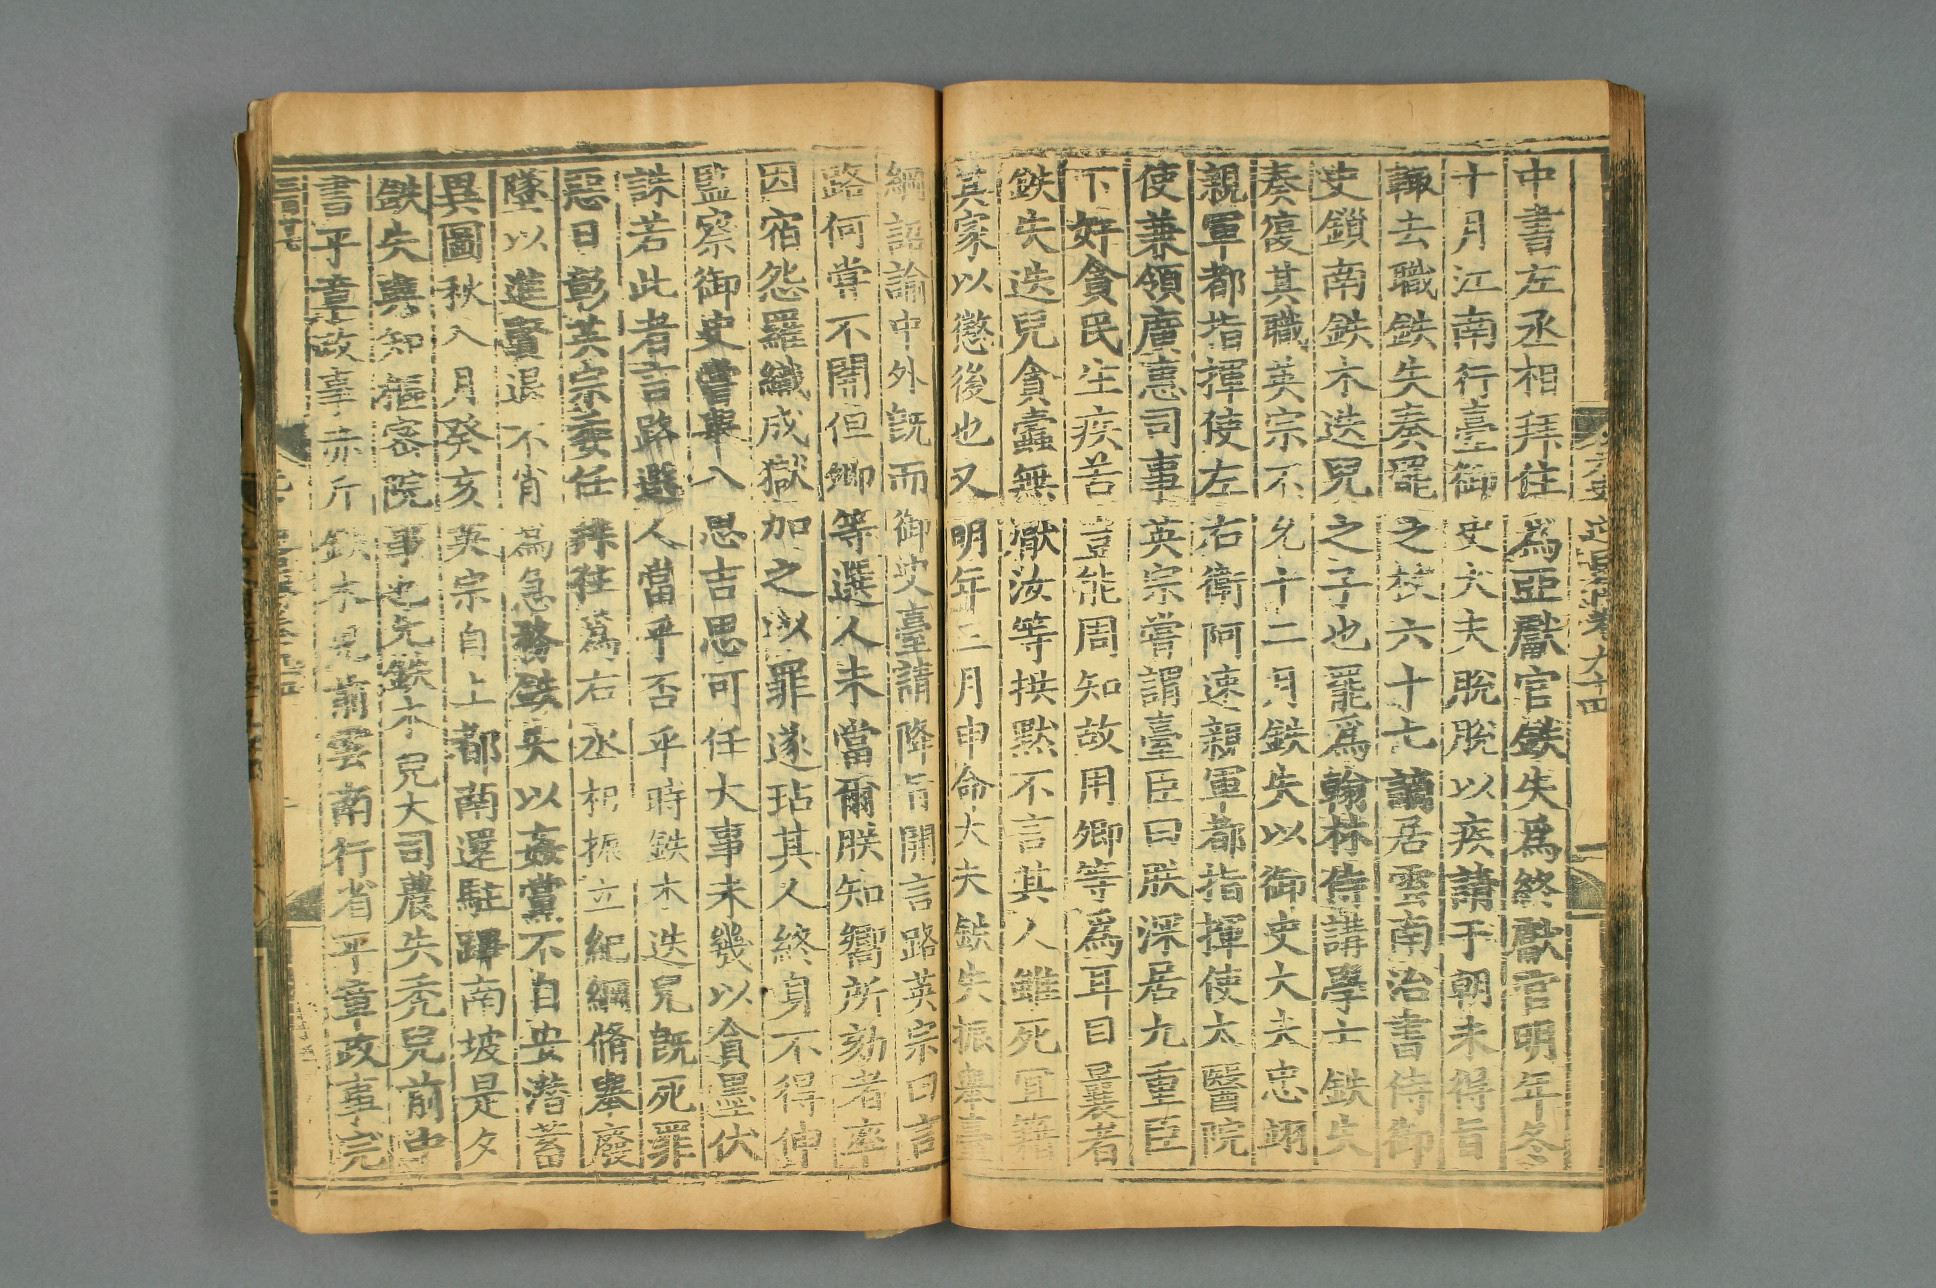 元史 逆臣傳卷九十四
中書左丞相拜住爲亞獻官鉄失爲終獻官明年冬
十月江南行臺御史大夫脫脫以疾請于朝未得旨
輒去職鉄失奏罷之杖六十七謫居雲南治書侍御
史鎖南鉄木迭兒之子也罷爲翰林侍講學士鉄失
奏復其職英宗不允十二月鉄失以御史大夫忠翊
親軍都指揮使左右衛阿速親軍都指揮使太醫院
使兼領廣惠司事英宗嘗謂臺臣曰朕深居九重臣
下奸貪民生疾苦豈能周知故用卿等爲耳目曩者
鉄失迭兒貪蠹無厭汝等拱默不言其人雖死宜籍
其家以懲後也又明年三月申命大夫鉄失振舉臺
綱詔諭中外既而御史臺請降旨開言路英宗曰言
路何嘗不開但卿等選人未當爾朕知嚮所劾者率
因宿怨羅織成獄加之以罪遂玷其人終身不得伸
監察御史嘗舉八思吉思可任大事未幾以貪墨伏
誅若此者言路選人當乎否乎時鉄木迭兒既死罪
惡日彰英宗委任拜住爲右丞相振立紀綱脩舉廢
墜以進賢退不肖爲急務鉄失以姦黨不自安潛蓄
異圖秋八月癸亥英宗自上都南還駐蹕南坡是夕
鉄失與知樞密院事也先鉄木兒大司農失禿兒前中
書平章政事赤斤鉄木兒前雲南行省平章政事完